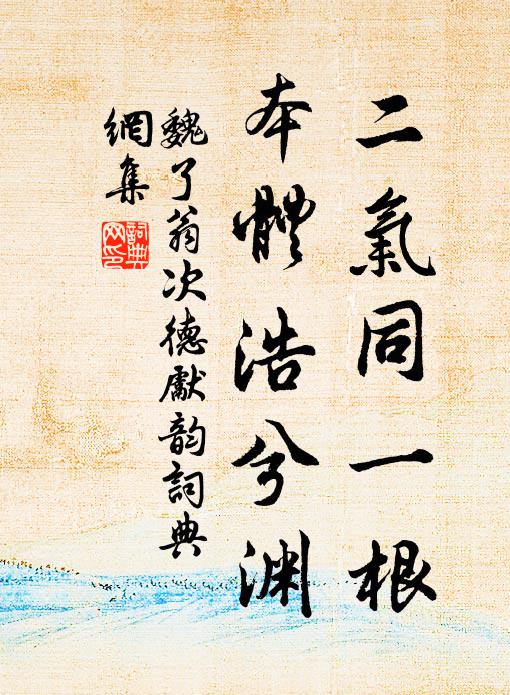 二氣同一根
本體浩兮淵
魏了翁次德獻韵詞典
網集
詞典
网印